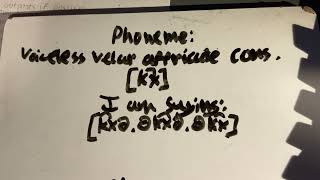 Phoneme:
Voiceless velar affricate cons.
[k͡x]
I am saying:
[k͡xə.ək͡xə.ək͡x]